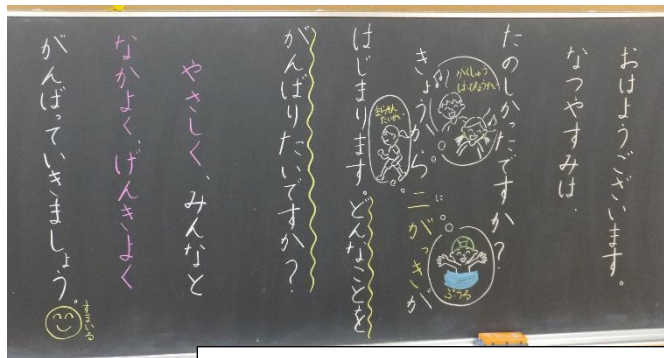 おはようございます。
なつやすみは、
たのしかったですか？
きょうから二がっきが
に
はじまります。どんなことを
がんばりたいですか？
やさしく、みんなと
なかよく、げんきよく
がんばっていきましょう。
がくしゅう
はっぴょうかい
まらそん
たいかい
ぷうる
すまいる